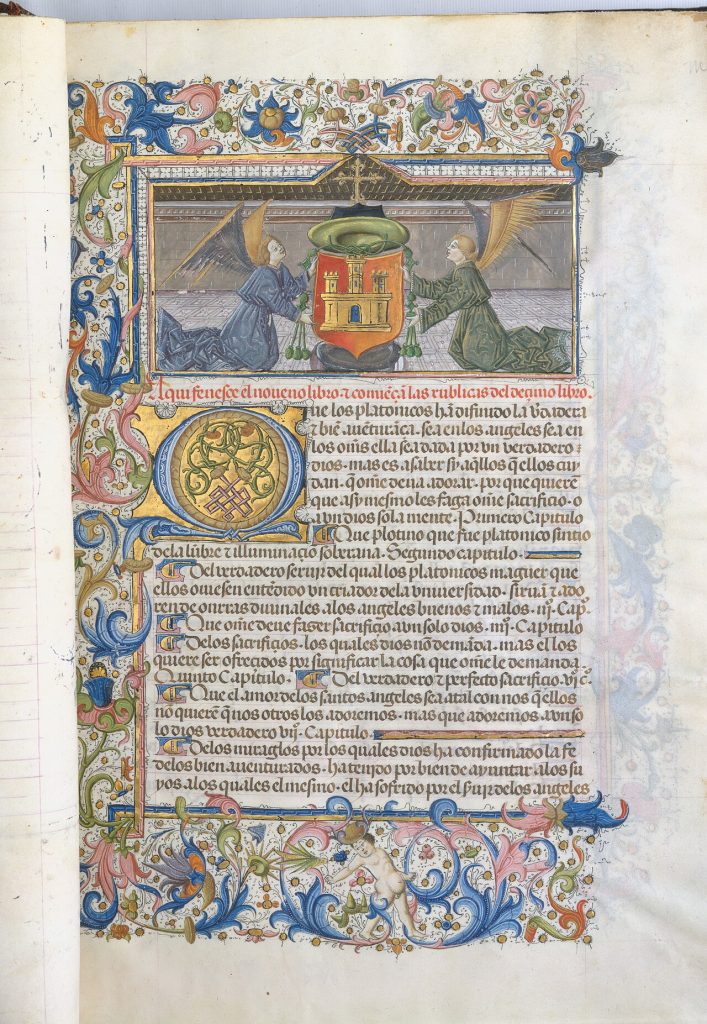 Aqui fenesce el noueno libro ⁊ comiẽçã las rublicas del deçimo libro.
Que los platonicos hã difinido la v̾dadera
⁊ biẽ auẽturãça. sea en los angeles sea en
los om̃s ella sea dada por vn verdadero
dios. mas es a saber sy aq̃llos q̃ ellos cuy
dan. q̃ om̃e deua adorar. por que quierẽ
que asy mesmo les faga om̃e sacrifiçio. o
a vn dios sola mente. Primero Capitulo
Que plotino que fue platonico sintio
de la lũbre ⁊ illuminaçiõ soberana. Segundo capitulo.
Del verdadero seruir del qual los platonicos maguer que
ellos ouiesen entẽdido vn criador de la vniuersidad. siruiã ⁊ ado
ren de onrras diuinales a los angeles buenos ⁊ malos. iijº. Capº.
Que om̃e deue fazer sacrifiçio a vn solo dios. iiijº. Capitulo
De los sacrifiçios. los quales dios nõ demãda. mas el los
quiere ser ofreçidos por significar la cosa que om̃e le demanda.
Quinto Capitulo. Del verdadero ⁊ perfecto sacrifiçio. vjº cº.
Que el amor de los santos angeles sea atal con nos q̃ ellos
nõ quierẽ q̃ nos otros los adoremos. mas que adoremos a vn so
lo dios verdadero vijº. Capitulo.
De los miraglos por los quales dios ha confirmado la fe
de los bien auenturados. ha tenido por bien de ayuntar a los su
yos a los quales el mesmo. el ha sofrido por el s̃uir de los angeles